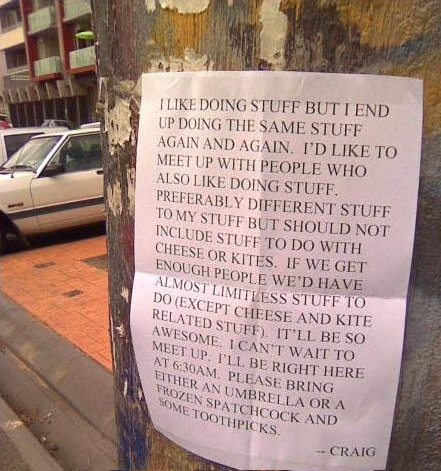 I LIKE DOING STUFF BUT I END
UP DOING THE SAME STUFF
AGAIN AND AGAIN. I'D LIKE TO
MEET UP WITH PEOPLE WHO
ALSO LIKE DOING STUFF.
PREFERABLY DIFFERENT STUFF
TO MY STUFF BUT SHOULD NOT
INCLUDE STUFF TO DO WITH
CHEESE OR KITES. IF WE GET
ENOUGH PEOPLE WE'D HAVE
ALMOST LIMITLESS STUFF TO
DO (EXCEPT CHEESE AND KITE
RELATED STUFF). IT'LL BE SO
AWESOME. I CAN'T WAIT TO
MEET UP. I'LL BE RIGHT HERE
AT 6:30AM. PLEASE BRING
EITHER AN UMBRELLA OR A
FROZEN SPATCHCOCK AND
SOME TOOTHPICKS.
-- CRAIG